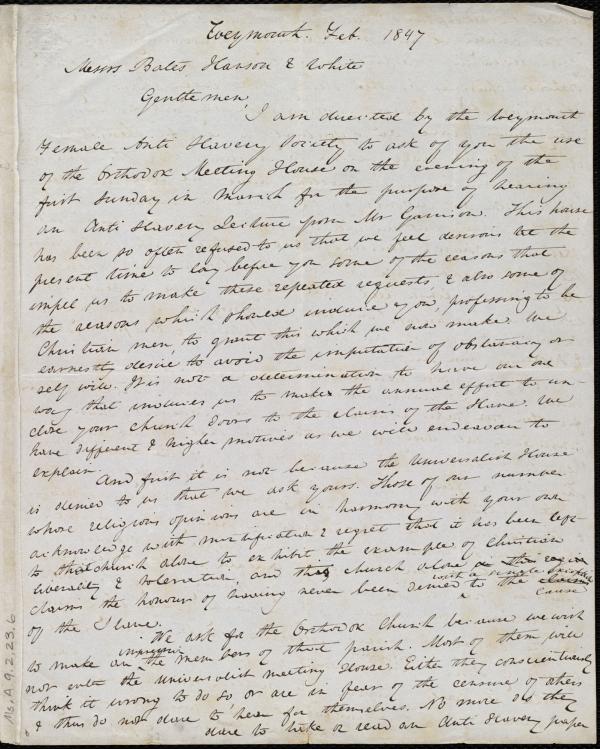 Weymouth. Feb. 1847
Messrs Bates Hanson & White
Gentlemen,
I am directed by the Weymouth
Female Anti Slavery Society to ask of you the use
of the Orthodox Meeting House on the evening of the
first Sunday in March for the purpose of hearing
an Anti Slavery Lecture from Mr Garrison. This house
has been so often refused to us that we feel desirous at the
present time to lay before you some of the reasons that
impel us to make these repeated requests, & also some of
the reasons which should induce you, professing to be
Christian men, to grant this which we now make. We
earnestly desire to avoid the imputation of obstinacy or
self will. It is not a determination to have our own
way that induces us to make the annual effort to un-
close your Church doors to the claims of the Slave. We
have different & higher motives as we will endeavour to
explain.
And first it is not because the Universalist House
is denied to us that we ask yours. Those of our number
whose religious opinions are in harmony with your own
acknowledge with mortification & regret that it has been left
to that church alone to exhibit the example of Christian
liberality & toleration, and that church alone
with a single
claims the honour of having never been denied to the
cause
of the Slave.
We ask for the Orthodox Church because we wish
to make an
impression
the members of that parish. Most of them will
not enter the Universalist meeting House. Either they conscientiously
think it wrong to do so or are in fear of the censure of others
& thus do not dare to hear for themselves. No more do they
dare to take or read an Anti Slavery paper
Ms.A.9.2.23.6